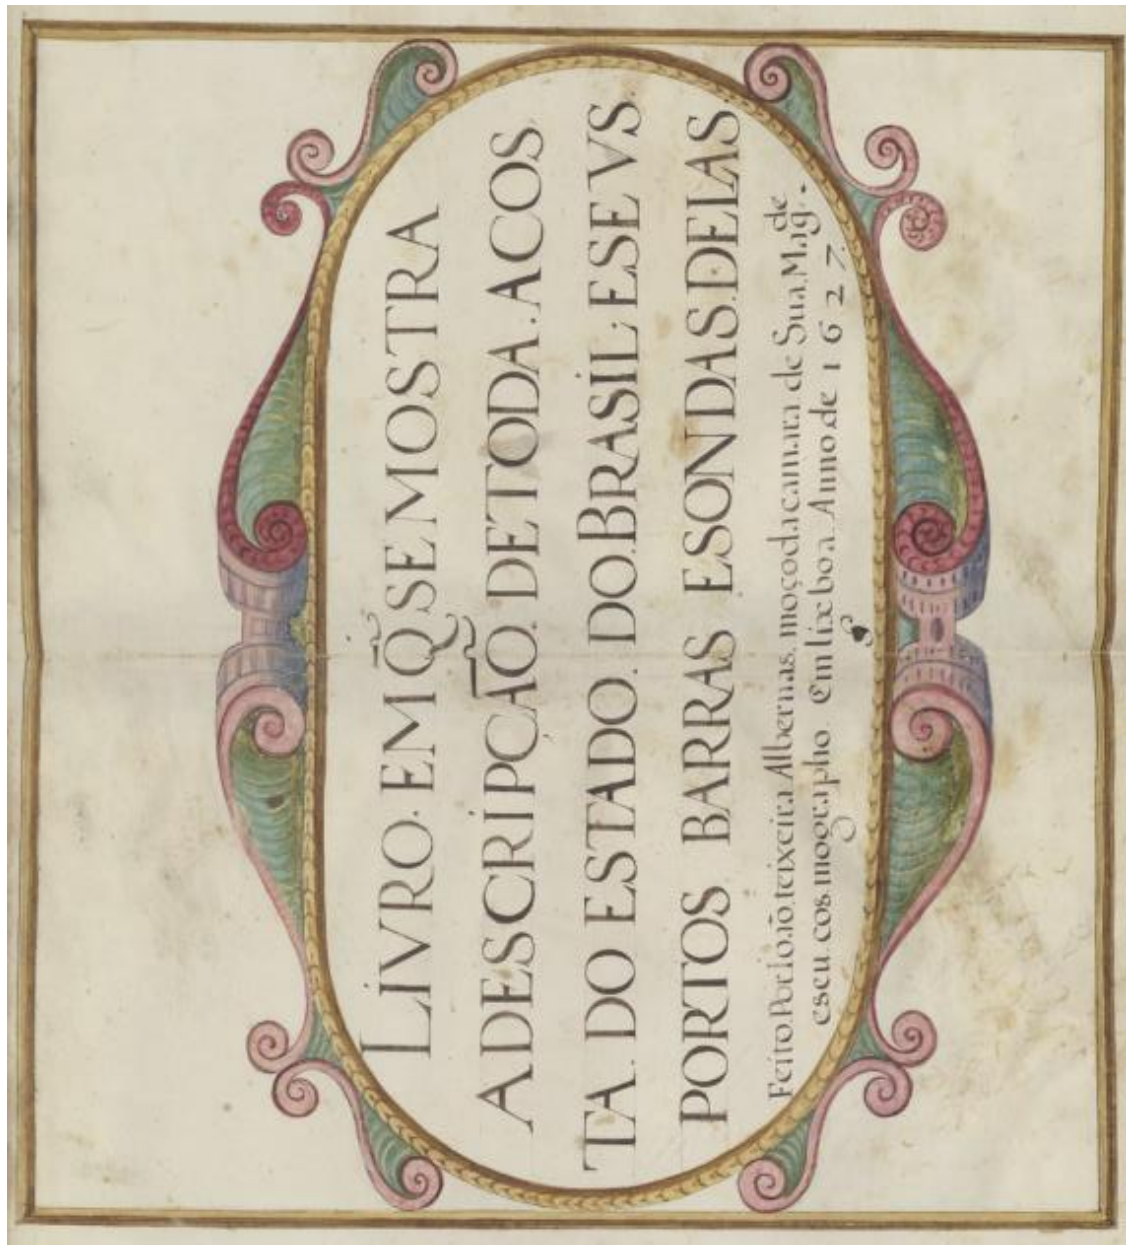 LIVRO. EM Q̃ SE MOSTRA
A DESCRIPÇÃO. DE TODA. A COS
TA. DO ESTADO. DO. BRASIL. E SEVS.
PORTOS BARRAS E SONDAS. DELAS
Feito. Por Ioaõ. teixeira. Albernas. moço da camara de Sua. Mag.de
e seu. cosmographo. Em lixboa. Anno. de 1627.